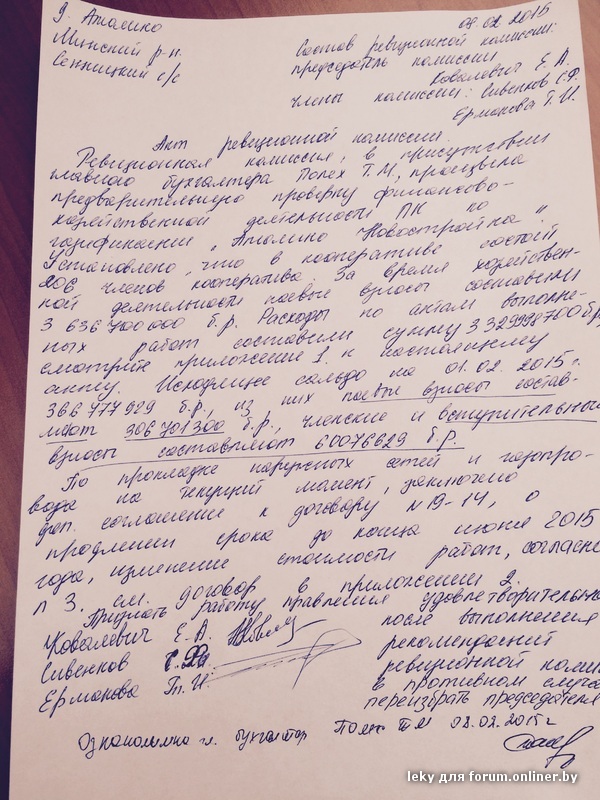 д. Аталино
Минский р-н.
Сеницкий с/с
08.02.2015
Состав ревиционной комиссии:
председатель комиссии
Ковалевич Е. А.
члены комиссии: Сивенков С.Ф.
Ермакова Т. И.
Акт ревиционной комиссии.
Ревиционная комиссия, в присутствии
главного бухгалтера Полех Т.М., произвела
предварительную проверку финансово-
хозяйственной деятельности ПК по
газификации „Аталино Новостройка".
Установлено, что в кооперативе состоит
206 членов кооператива. За время хозяйствен-
ной деятельности паевые взносы составили
3 636 700 000 б.р. Расходы по актам выполне-
ных работ составили сумму 3 329998700 б.р,
смотрите приложение 1 к настоящему
акту. Исходящее сальдо на 01.02 2015 г.
366 777 929 б.р., из них паевые взносы состав-
ляют 306 701 300 б.р., членские и вступительные
взносы составляют 60076629 б.р.
По прокладке наружных сетей и газопро-
вода на текущий момент, заключено
доп. соглашение к договору №19-14, о
продлении срока до конца июня 2015
года, изменение стоимости работ, согласно
п 3. см. договор в приложении 2.
Признать работу правления удовлетворительно
после выполнения
рекомендаций
ревиционной комис
в противном случае
переизбрать председателя
Ковалевич Е. А.
Сивенков С. Ф.
Ермакова Т. И.
Ознакомлена гл. бухгалтер Полех ТМ 08.02.2015 г
leky для forum.onliner.by